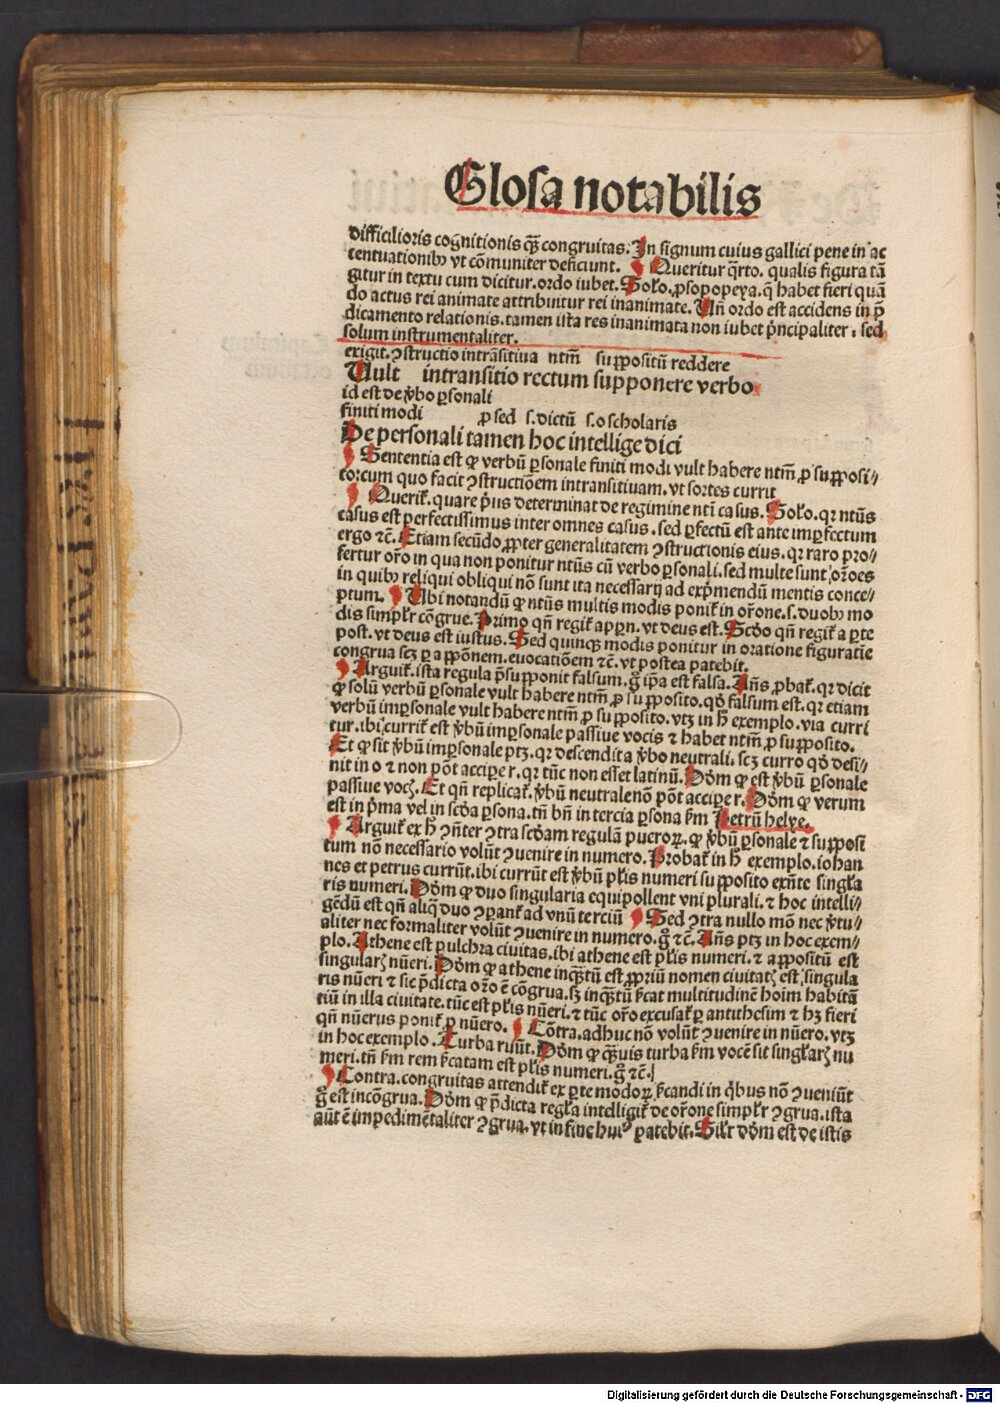 Glosa notabilis
difficilioris cognitionis qȝ̄ congruitas. In signum cuius gallici pene in ac
centuationibꝰ vt cōmuniter deficiunt. Queritur q̄rto. qualis figura tā
gitur in textu cum dicitur. ordo iubet. Solo. ꝓsopopeya. q̄ habet fieri quā
do actus rei animate attribuitur rei inanimate. Uñ ordo est accidens in p̄
dicamento relationis. tamen ista res inanimata non iubet p̄ncipaliter. sed
solum instrumentaliter.
exigit. ꝯstructio intrāsitiua ntm̄ supposituȝ reddere
Uult intransitio rectum supponere verbo
id est de v̓bo ꝑsonali
finiti modi ꝓ sed s. dictū s. o scholaris
De personali tamen hoc intellige dici
Sententia est ꝙ verbū ꝑsonale finiti modi vult habere ntm̄ ꝓ supposi-
to: cum quo facit ꝯstructiōem intransitiuam. vt sortes currit
Querit̄. quare p̓us determinat de regimine nti̅ casus. Solo. qꝛ ntūs
casus est perfectissimus inter omnes casus. sed ꝑfectū est ante imꝑfectum
ergo ⁊c̄. Etiam secūdo ꝓpter generalitatem ꝯstructionis eius. qꝛ raro pro-
fertur or̄o in qua non ponitur ntūs cū verbo ꝑsonali. sed multe sunt or̄oes
in quibꝰ reliqui obliqui nō sunt ita necessarij ad exp̄mendū mentis conce-
ptum. Ubi notandū ꝙ ntūs multis modis ponit̄ in or̄one. s. duobꝰ mo
dis simplr̄ cōgrue. Primo qn̄ regit̄ a ꝑp̄n. vt deus est. Scd̄o qn̄ regit̄ a ꝑte
post. vt deus est iustus. Sed quinqȝ modis ponitur in oratione figuratiē
congrua scȝ ꝑ appōnem. euocatiōem ⁊c̄. vt postea patebit.
Arguit̄. ista regula p̄supponit falsum. g̊ ip̄a est falsa. Añs ꝓbat̄. qꝛ dicit
ꝙ solū verbū ꝑsonale vult habere ntm̄ ꝓ supposito. qd̓ falsum est. qꝛ etiam
verbū imꝑsonale vult habere ntm̄ ꝓ supposito. vtȝ in h̓ exemplo. via curri
tur. ibi currit̄ est v̓bū imꝑsonale passiue vocis ⁊ habet ntm̄ ꝓ supposito.
Et ꝙ sit v̓bū imꝑsonale ptȝ. qꝛ descendit a v̓bo neutrali. scȝ curro qd̓ desi-
nit in o ⁊ non pōt accipe r. qꝛ tūc non esset latinū. Dd̓m ꝙ est v̓bū ꝑsonale
passiue voc̄. Et qn̄ replicat̄. v̓bū neutrale nō pōt accipe r. Dd̓m ꝙ verum
est in p̓ma vel in scd̓a ꝑsona. tn̄ bn̄ in tercia ꝑsona ẜm Petrū helye.
Arguit̄ ex h̓ ꝯñter ꝯtra scd̓am regulā pueroꝝ. ꝙ v̓bū ꝑsonale ⁊ supposi
tum nō necessario volūt ꝯuenire in numero. Probat̄ in h̓ exemplo. iohan
nes et petrus currūt. ibi currūt est v̓bū pl̓is numeri supposito exñte singl̓a
ris numeri. Dd̓m ꝙ duo singularia equipollent vni plurali. ⁊ hoc intelli-
gēdū est qn̄ aliq̄ duo ꝯꝑant̄ ad vnū terciū Sed ꝯtra nullo mō nec v̓tu-
aliter nec formaliter volūt ꝯuenire in numero. g̊ ⁊c̄. Añs ptȝ in hoc exem-
plo. Athene est pulchra ciuitas. ibi athene est pl̓is numeri. ⁊ appositū est
singularꝭ nūeri. Dd̓m ꝙ athene inqȝ̄tū est ꝓpriū nomen ciuitatꝭ est singula
ris nūeri ⁊ sic p̄dicta or̄o ē cōgrua. sȝ inqȝ̄tū ẜcat multitudinē hoīm habitā
tiū in illa ciuitate. tūc est pl̓is nūeri. ⁊ tūc or̄o excusat̄ ꝑ antithesim ⁊ hȝ fieri
qn̄ nūerus ponit̄ ꝓ nūero. Cōtra. adhuc nō volūt ꝯuenire in nūero. vtȝ
in hoc exemplo. Turba ruūt. Dd̓m ꝙ qȝ̄uis turba ẜm vocē sit singl̓arꝭ nu
meri. tn̄ ẜm rem ẜcatam est pl̓is numeri. g̊ ⁊c̄.
Contra. congruitas attendit̄ ex ꝑte modoꝝ ẜcandi in q̓bus nō ꝯueniūt
g̊ est incōgrua. Dd̓m ꝙ p̄dicta regl̓a intelligit̄ de or̄one simplr̄ ꝯgrua. ista
aūt ē impedimētaliter ꝯgrua. vt in fine huiꝰ patebit. Silr̄ dd̓m est de istis
Digitalisierung gefördert durch die Deutsche Forschungsgemeinschaft - DFG